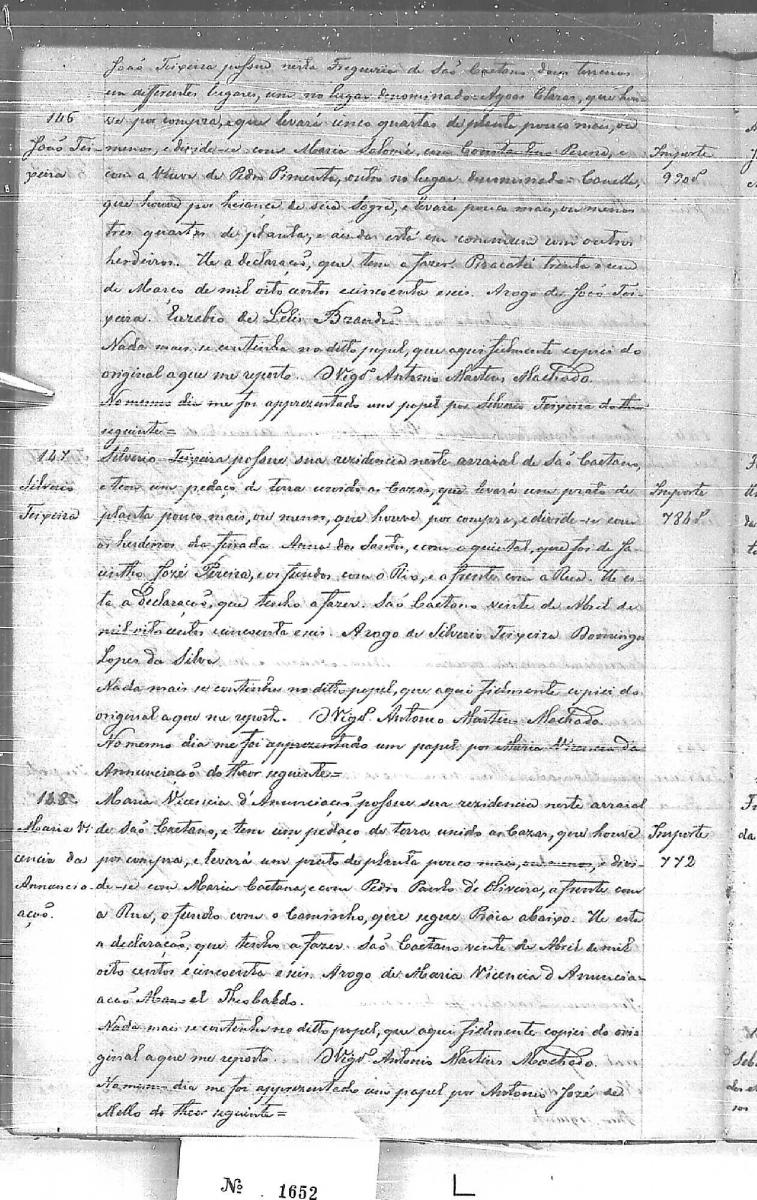 João Teixeira possue nesta Freguezia de São Caetano dous terrenos
em differentes lugares, um no lugar denominado Agoas Claras, que hou-
146
ve por compra, e que levará cinco quartas de planta pouco mais, ou
João Tei-
xeira
menos, e divide-se com Maria Salomé, com Pereira, e
Importe
990 rs
com a Viuva de Pedro Pimenta, outro no lugar denominado =
que houve por herança de seu Sogro, e levará pouco mais, ou menos
tres quartas de planta, e ainda está em commum com outros
herdeiros. He a declaração, que tem a fazer. trinta e um
de Março de mil oito centos e cincoenta e seis. Arogo de João Tei-
xeira. Euzebio de Lelis Brandão
Nada mais se continha no ditto papel, que aqui fielmente copiei do
original a que me reporto. O Vigro Antonio Martins Machado.
No mesmo dia me foi apprezentado um papel por Silverio Teixeira do theor
seguinte =
147
Silverio
Teixeira
Silverio Teixeira possue sua rezidencia neste arraial de São Caetano,
e tem um pedaço de terra unido as Cazas, que levará um prato de
Importe
784 rs
planta pouco mais, ou menos, que houve por compra, e divide-se com
os herdeiros da finada Anna dos Santos, e com o quintal, que foi de Ja-
cintho Jozé Pereira, e os fundos com o Rio, e a frente com a Rua. He es-
ta a declaração, que tenho a fazer. São Caetano vinte de Abril de
mil oito centos e cincoenta e seis. Arogo de Silverio Teixeira Domingos
Lopes da Silva
Nada mais se continha no ditto papel, que aqui fielmente copiei do
original a que me reporto. O Vigro Antonio Martins Machado
No mesmo dia me foi apprezentado um papel por Maria Vicencia da
Annunciação do theor seguinte =
148
Maria Vi
cencia da
Annuncia-
ação.
Maria Vicencia d'Anunciação possue sua rezidencia neste arraial
de São Caetano, e tem um pedaço de terra unido as Cazas, que houve
Importe
772
por compra, e levará um prato de planta pouco mais, ou menos, e divi-
de-se com Maria Caetana, e com Pedro Paulo de Oliveira, a frente com
a Rua, o fundo com o Caminho, que segue Praia abaixo. He esta
a declaração, que tenho a fazer. São Caetano vinte de Abril de mil
oito centos e cincoenta e seis. Arogo de Maria Vicencia d'Anuncia-
acão Manoel Theobaldo.
Nada mais se continha no ditto papel, que aqui fielmente copiei do ori-
ginal a que me reporto. O Vigro Antonio Martins Machado.
No mesmo dia me foi apprezentado um papel por Antonio Jozé de
Mello do theor seguinte =
Nº 1652